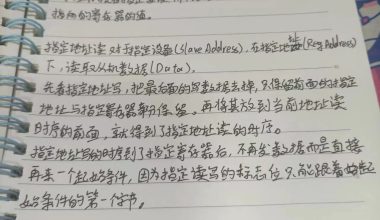 指向的寄存器的值。
指定地址读：对于指定设备(Slave Address)，在指定地址(Reg Address)
下，读取从机数据(Data)。
先看指定地址写，把最后面的写数据去掉，只保留前面的指定
地址与指定寄存器部分保留。再将其放到当前地址读
时序的前面，就得到了指定地址读的时序。
指定地址写的时序到了指定寄存器后，不再发数据而是直接
再来一个起始条件，因为指定读写的标志位只能跟着
始条件的第一个字节。